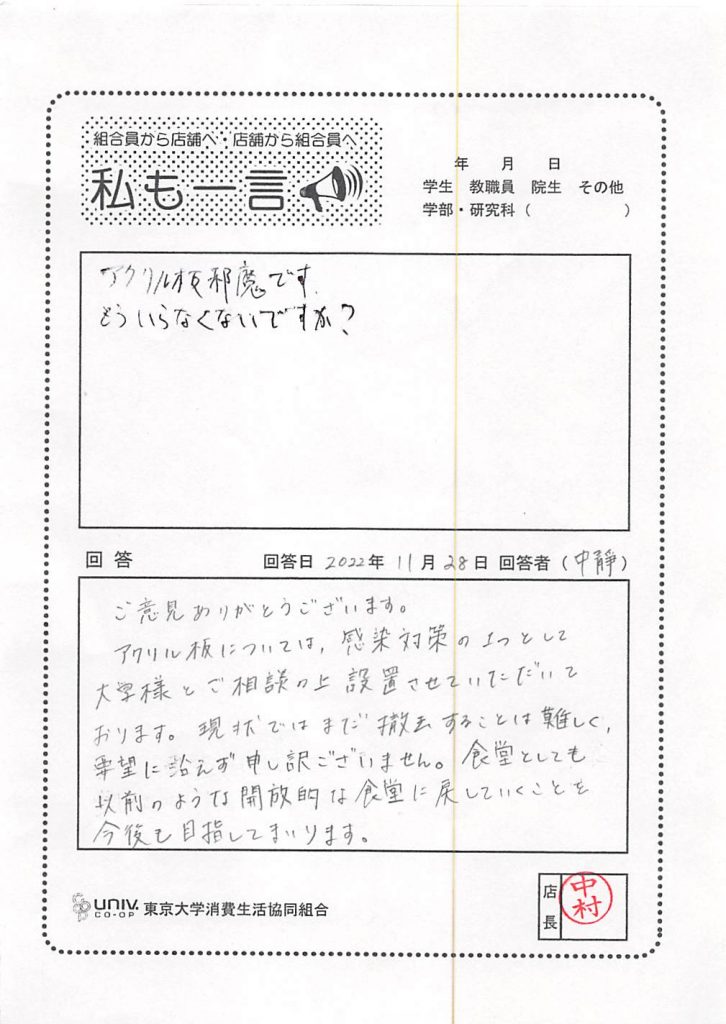 組合員から店舗へ・店舗から組合員へ
私も一言
年 月 日
学生 教職員 院生 その他
学部・研究科（ ）
アクリル板邪魔です.
もういらなくないですか?
回答 回答日 2022年 11月 28日 回答者（中靜）
ご意見ありがとうございます。
アクリル板については、感染対策の1つとして
大学様とご相談の上 設置させていただいて
おります。現状ではまだ撤去することは難しく、
要望に沿えず申し訳ございません。食堂としても
以前のような開放的な食堂に戻していくことを
今後も目指してまいります。
UNIV. CO-OP 東京大学消費生活協同組合
店長
中村